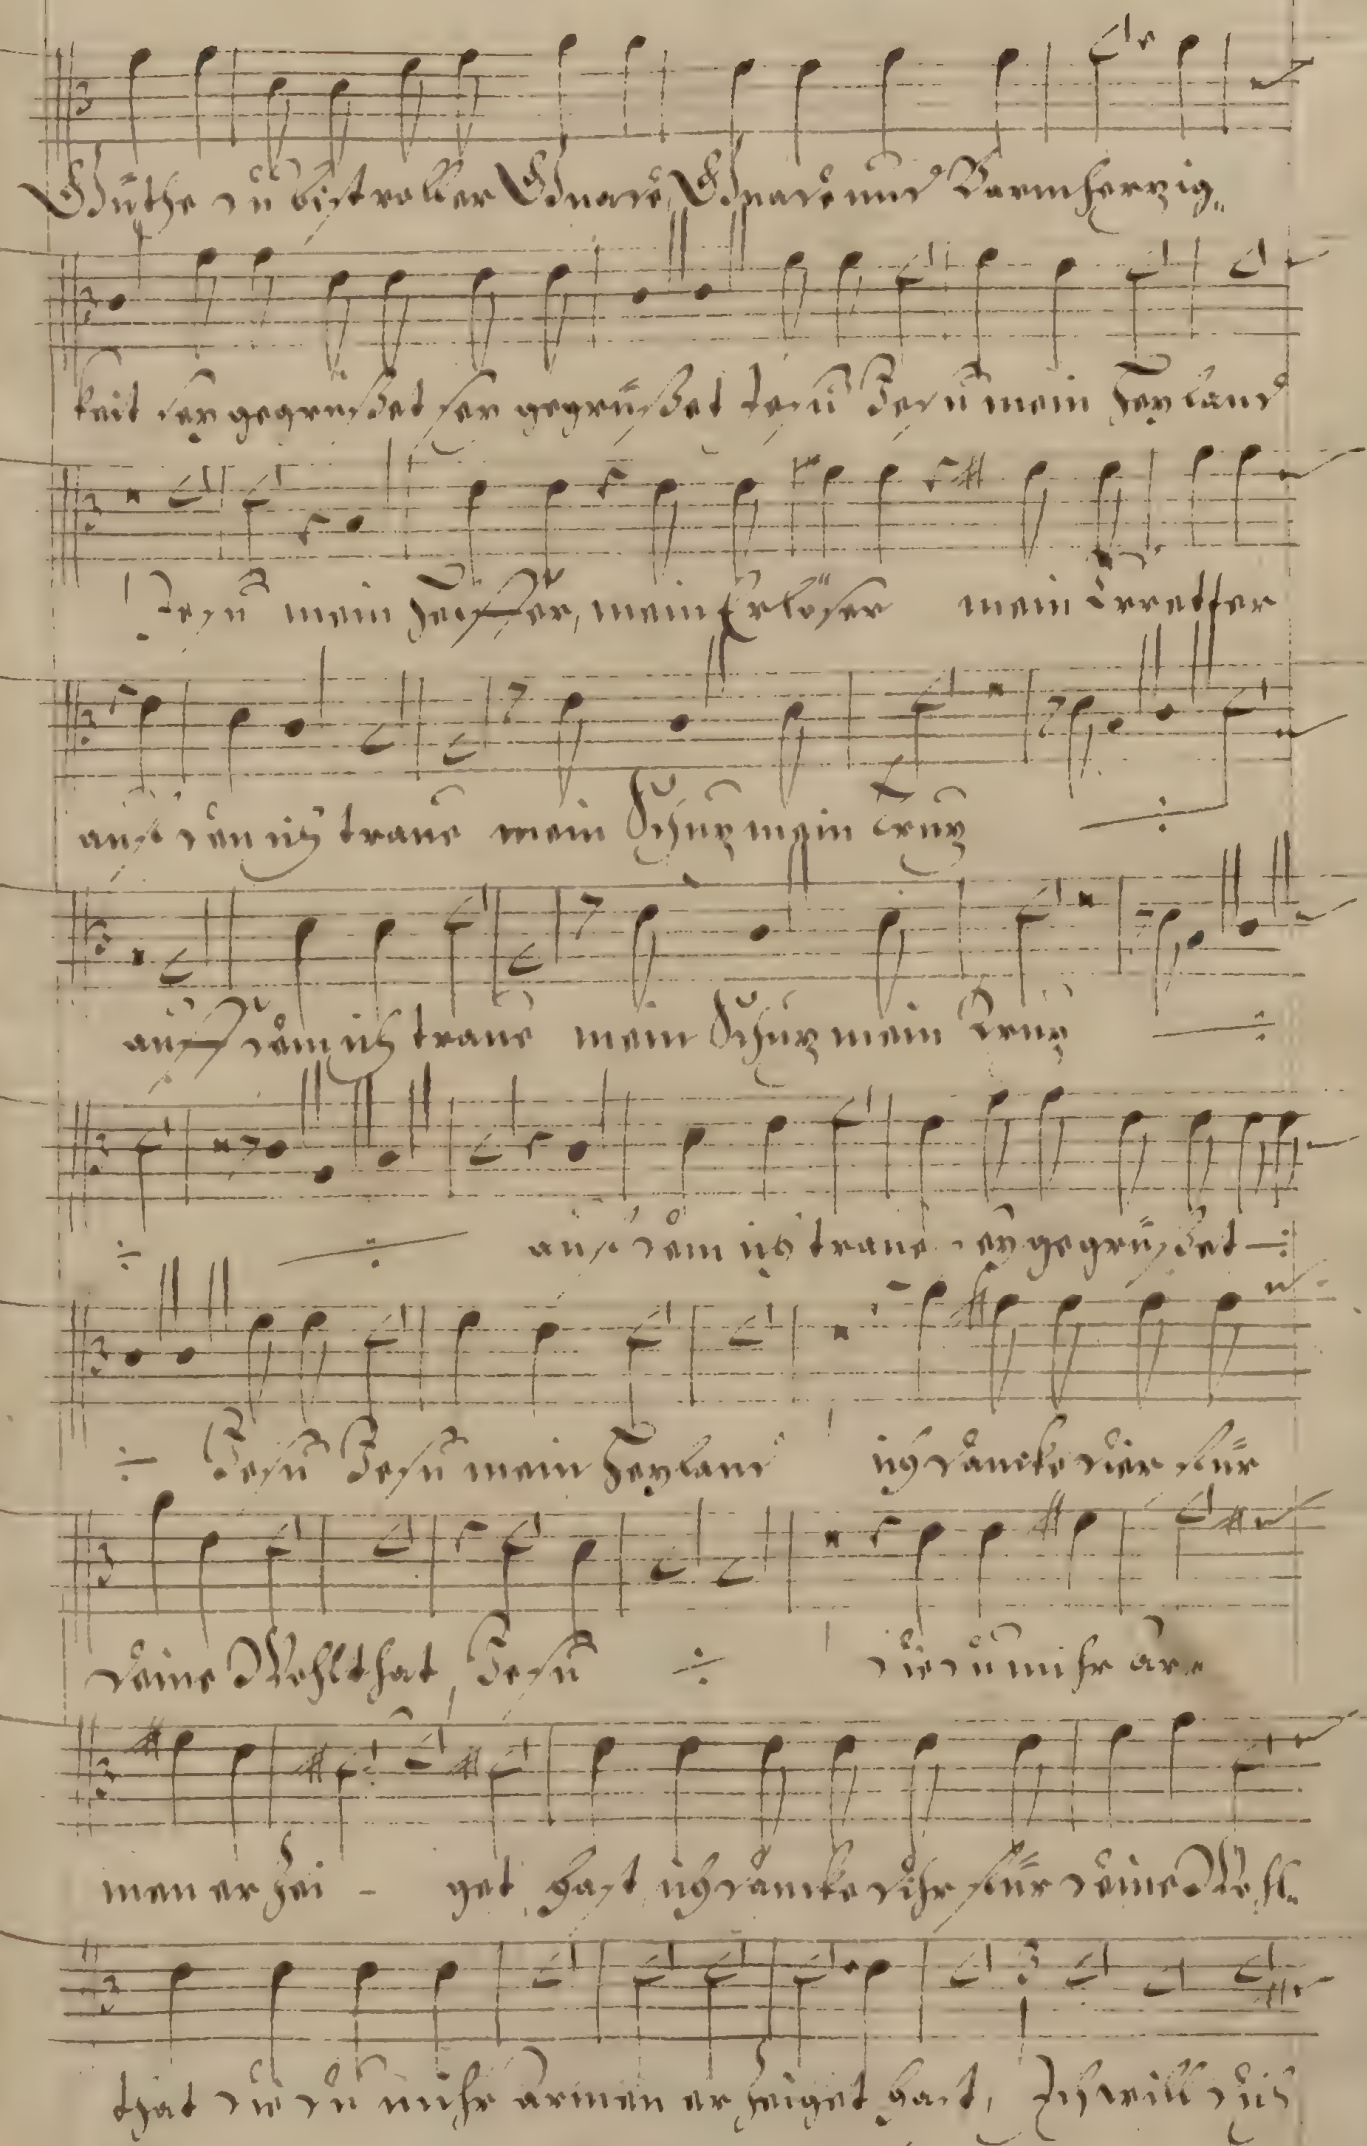 Güthe du bist voller Gnade, Gnade und Barmherzig„
keit sey gegrüßet sey gegrüßet Jesu Jesu mein Heyland
Jesu mein Helffer, mein Erlöser mein Erretter
auf den ich traue mein Schuz mein Truz ÷
auff dem ich traue mein Schuz mein Truz ÷
÷ ÷ auf dem ich traue sey gegrüßet ÷
÷ Jesu Jesu mein Heyland ich dancke dier für
deine Wohlthat, Jesu ÷ die du mihr ar„
men erzei - get hast ich dancke dihr für deine Wohl„
that die du mihr armen erzeiget hast, Ich will dich